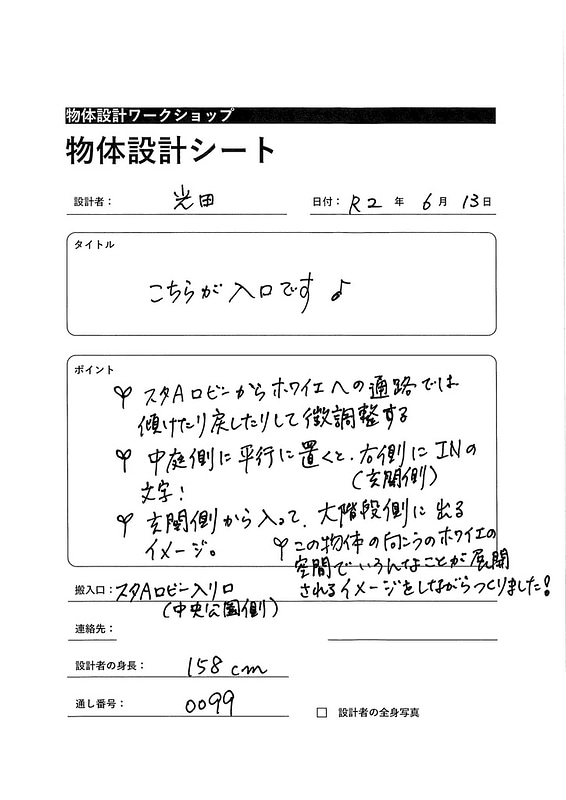 物体設計ワークショップ
物体設計シート
設計者： 光田
日付： R2 年 6 月 13 日
タイトル
こちらが入口です♪
ポイント
スタAロビーからホワイエへの通路では
傾けたり戻したりして微調整する
中庭側に平行に置くと、右側にINの
(玄関側)
文字！
玄関側から入って、大階段側に出る
イメージ。
この物体の向こうのホワイエの
空間でいろんなことが展開
されるイメージをしながらつくりました！
搬入口： スタAロビー入り口
(中央公園側)
連絡先：
設計者の身長： 158cm
通し番号： 0099
□ 設計者の全身写真